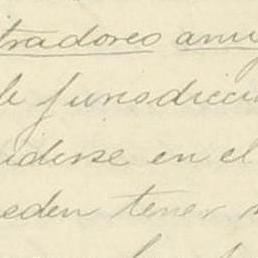 tradores ami
de jurisdicci
uidirse en el
ueden tener